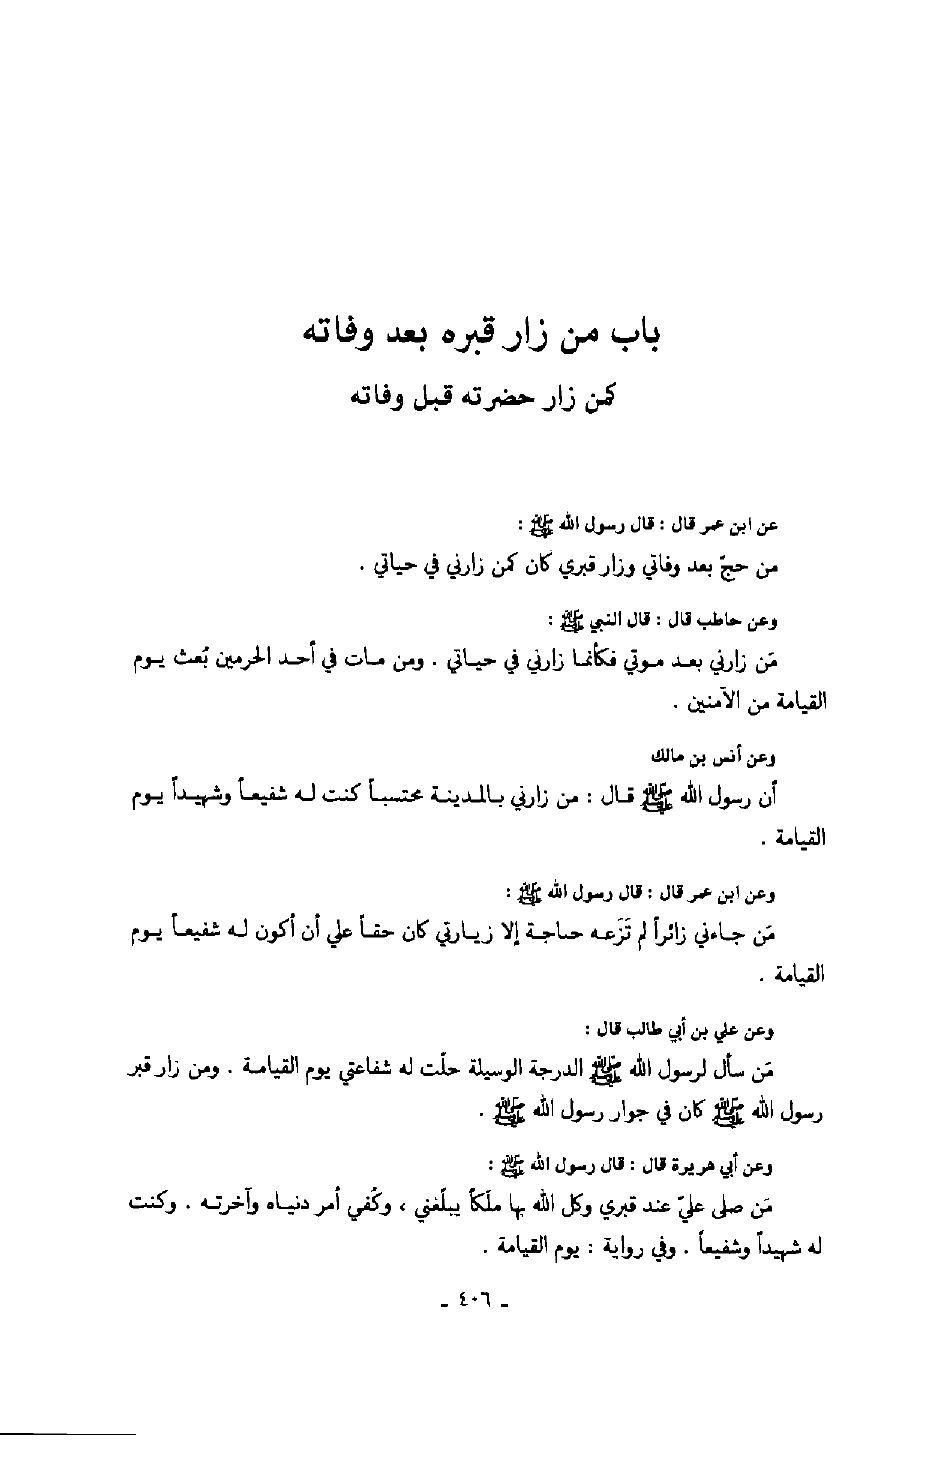 باب من زار قبره بعد وفاته
كمن زار حضرته قبل وفاته
عن ابن عمر قال : قال رسول الله ﷺ :
من حجّ بعد وفاتي وزار قبري كان كمن زارني في حياتي .
وعن حاطب قال : قال النبي ﷺ :
مَن زارني بعد موتي فكأنما زارني في حياتي . ومن مات في أحد الحرمين بُعث يوم
القيامة من الآمنين .
وعن أنس بن مالك
أن رسول الله ﷺ قال : من زارني بالمدينة محتسباً كنت له شفيعاً وشهيداً يوم
القيامة .
وعن ابن عمر قال : قال رسول الله ﷺ :
مَن جاءني زائراً لم تَزَعه حاجة إلا زيارتي كان حقاً علي أن أكون له شفيعاً يوم
القيامة .
وعن علي بن أبي طالب قال :
مَن سأل لرسول الله ﷺ الدرجة الوسيلة حلّت له شفاعتي يوم القيامة . ومن زار قبر
رسول الله ﷺ كان في جوار رسول الله ﷺ .
وعن أبي هريرة قال : قال رسول الله ﷺ :
مَن صلى عليّ عند قبري وكل الله بها ملَكاً يبلّغني ، وكُفي أمر دنياه وآخرته . وكنت
له شهيداً وشفيعاً . وفي رواية : يوم القيامة .
- ٤٠٦ -